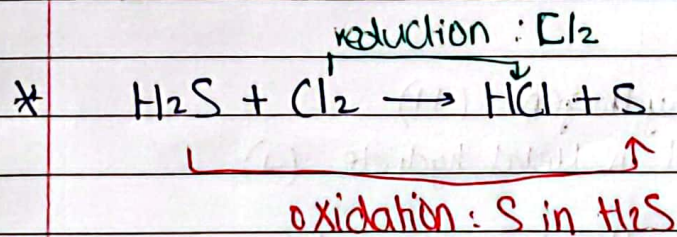 reduction : Cl2
* H2S + Cl2 → HCl + S
oxidation : S in H2S